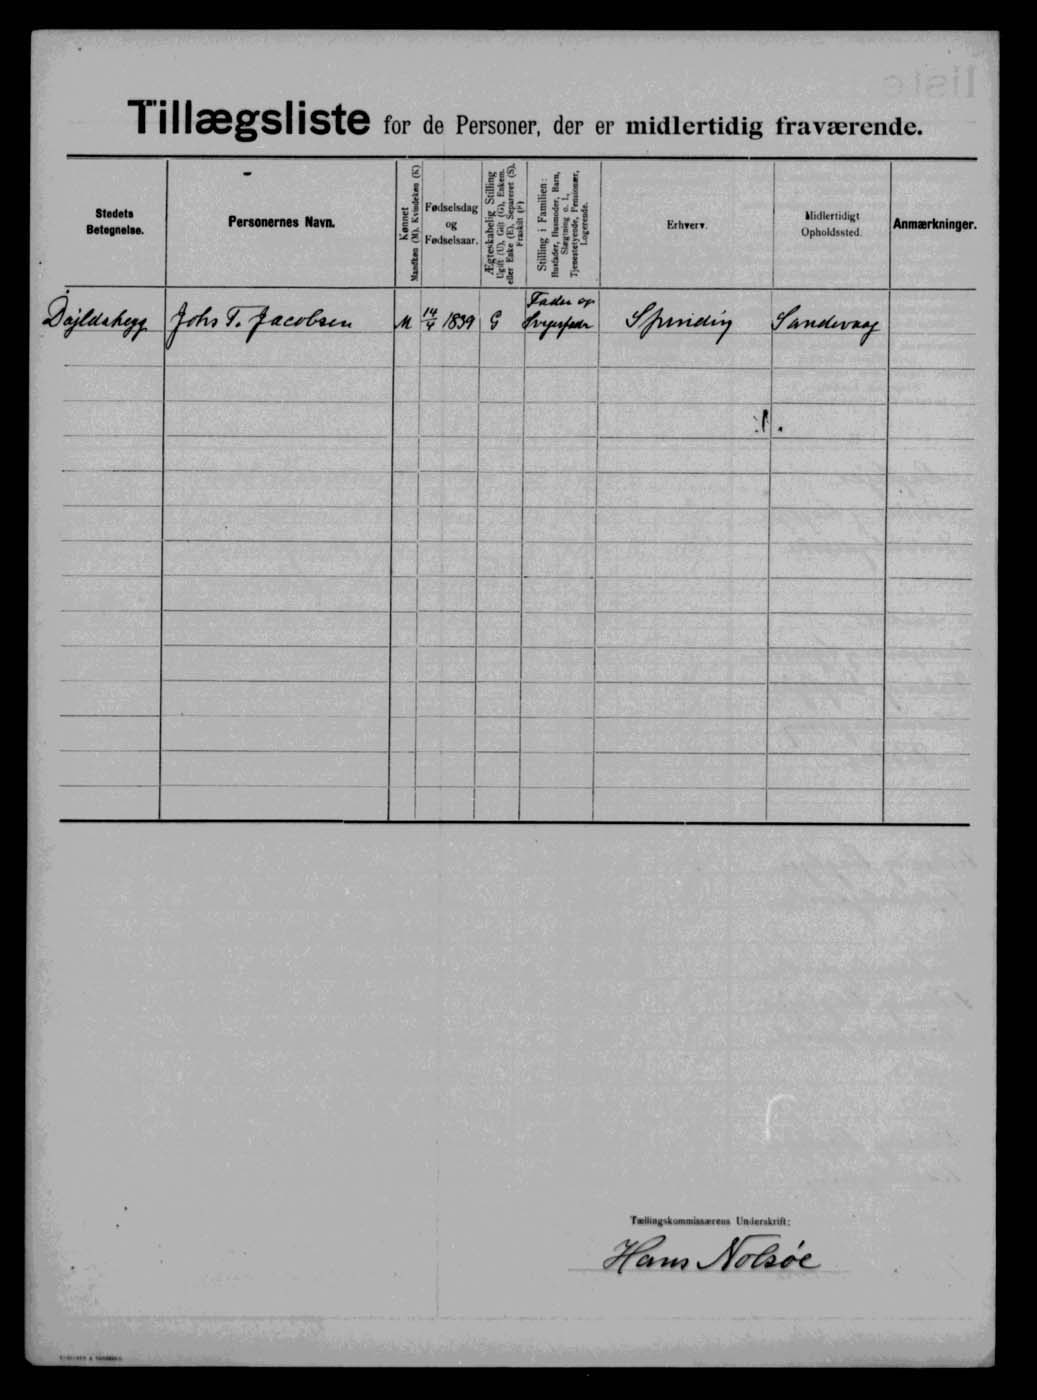 Tillægsliste for de Personer, der er midlertidig fraværende.
Stedets Betegnelse.
Personernes Navn.
Kønnet Mandkøn (M). Kvindekøn (K)
Fødselsdag og Fødselsaar.
Ægteskabelig Stilling Ugift (U), Gift (G), Enkem. eller Enke (E), Separeret (S), Fraskilt (F)
Stilling i Familien: Husfader, Husmoder, Barn, Slægtning o. l., Tjenestetyende, Pensionær, Logerende.
Erhverv.
Midlertidigt Opholdssted.
Anmærkninger.
Johs T. Jacobsen M 14/4 1839 G Fader og Svigerfader Sandevaag
Tællingskommissærens Underskrift:
Hans Nolsøe